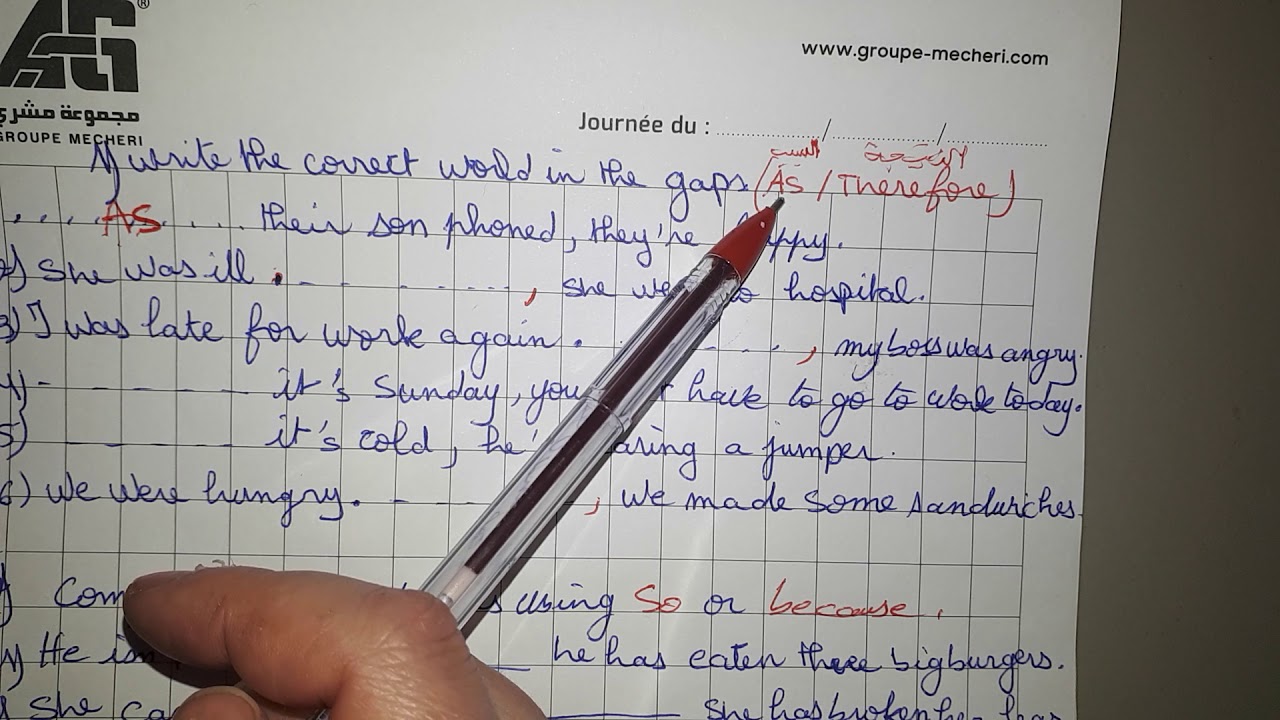 AG®
مجموعة مشري
GROUPE MECHERI
www.groupe-mecheri.com
Journée du : ............/............/............
السبب النتيجة
1) write the correct world in the gaps (AS / Therefore)
.... AS .... their son phoned, they're happy.
2) She was ill. _ _ _ _ , she we to hospital.
3) I was late for work again. _ _ _ , my boss was angry.
4) - _ _ _ _ it's Sunday, you have to go to work today.
5) _ _ _ _ it's cold, he' aring a jumper.
6) we were hungry. - _ _ _ , we made some sandwiches.
) Com s using So or because.
1) He isn he has eaten three big burgers.
She ca she has broken he